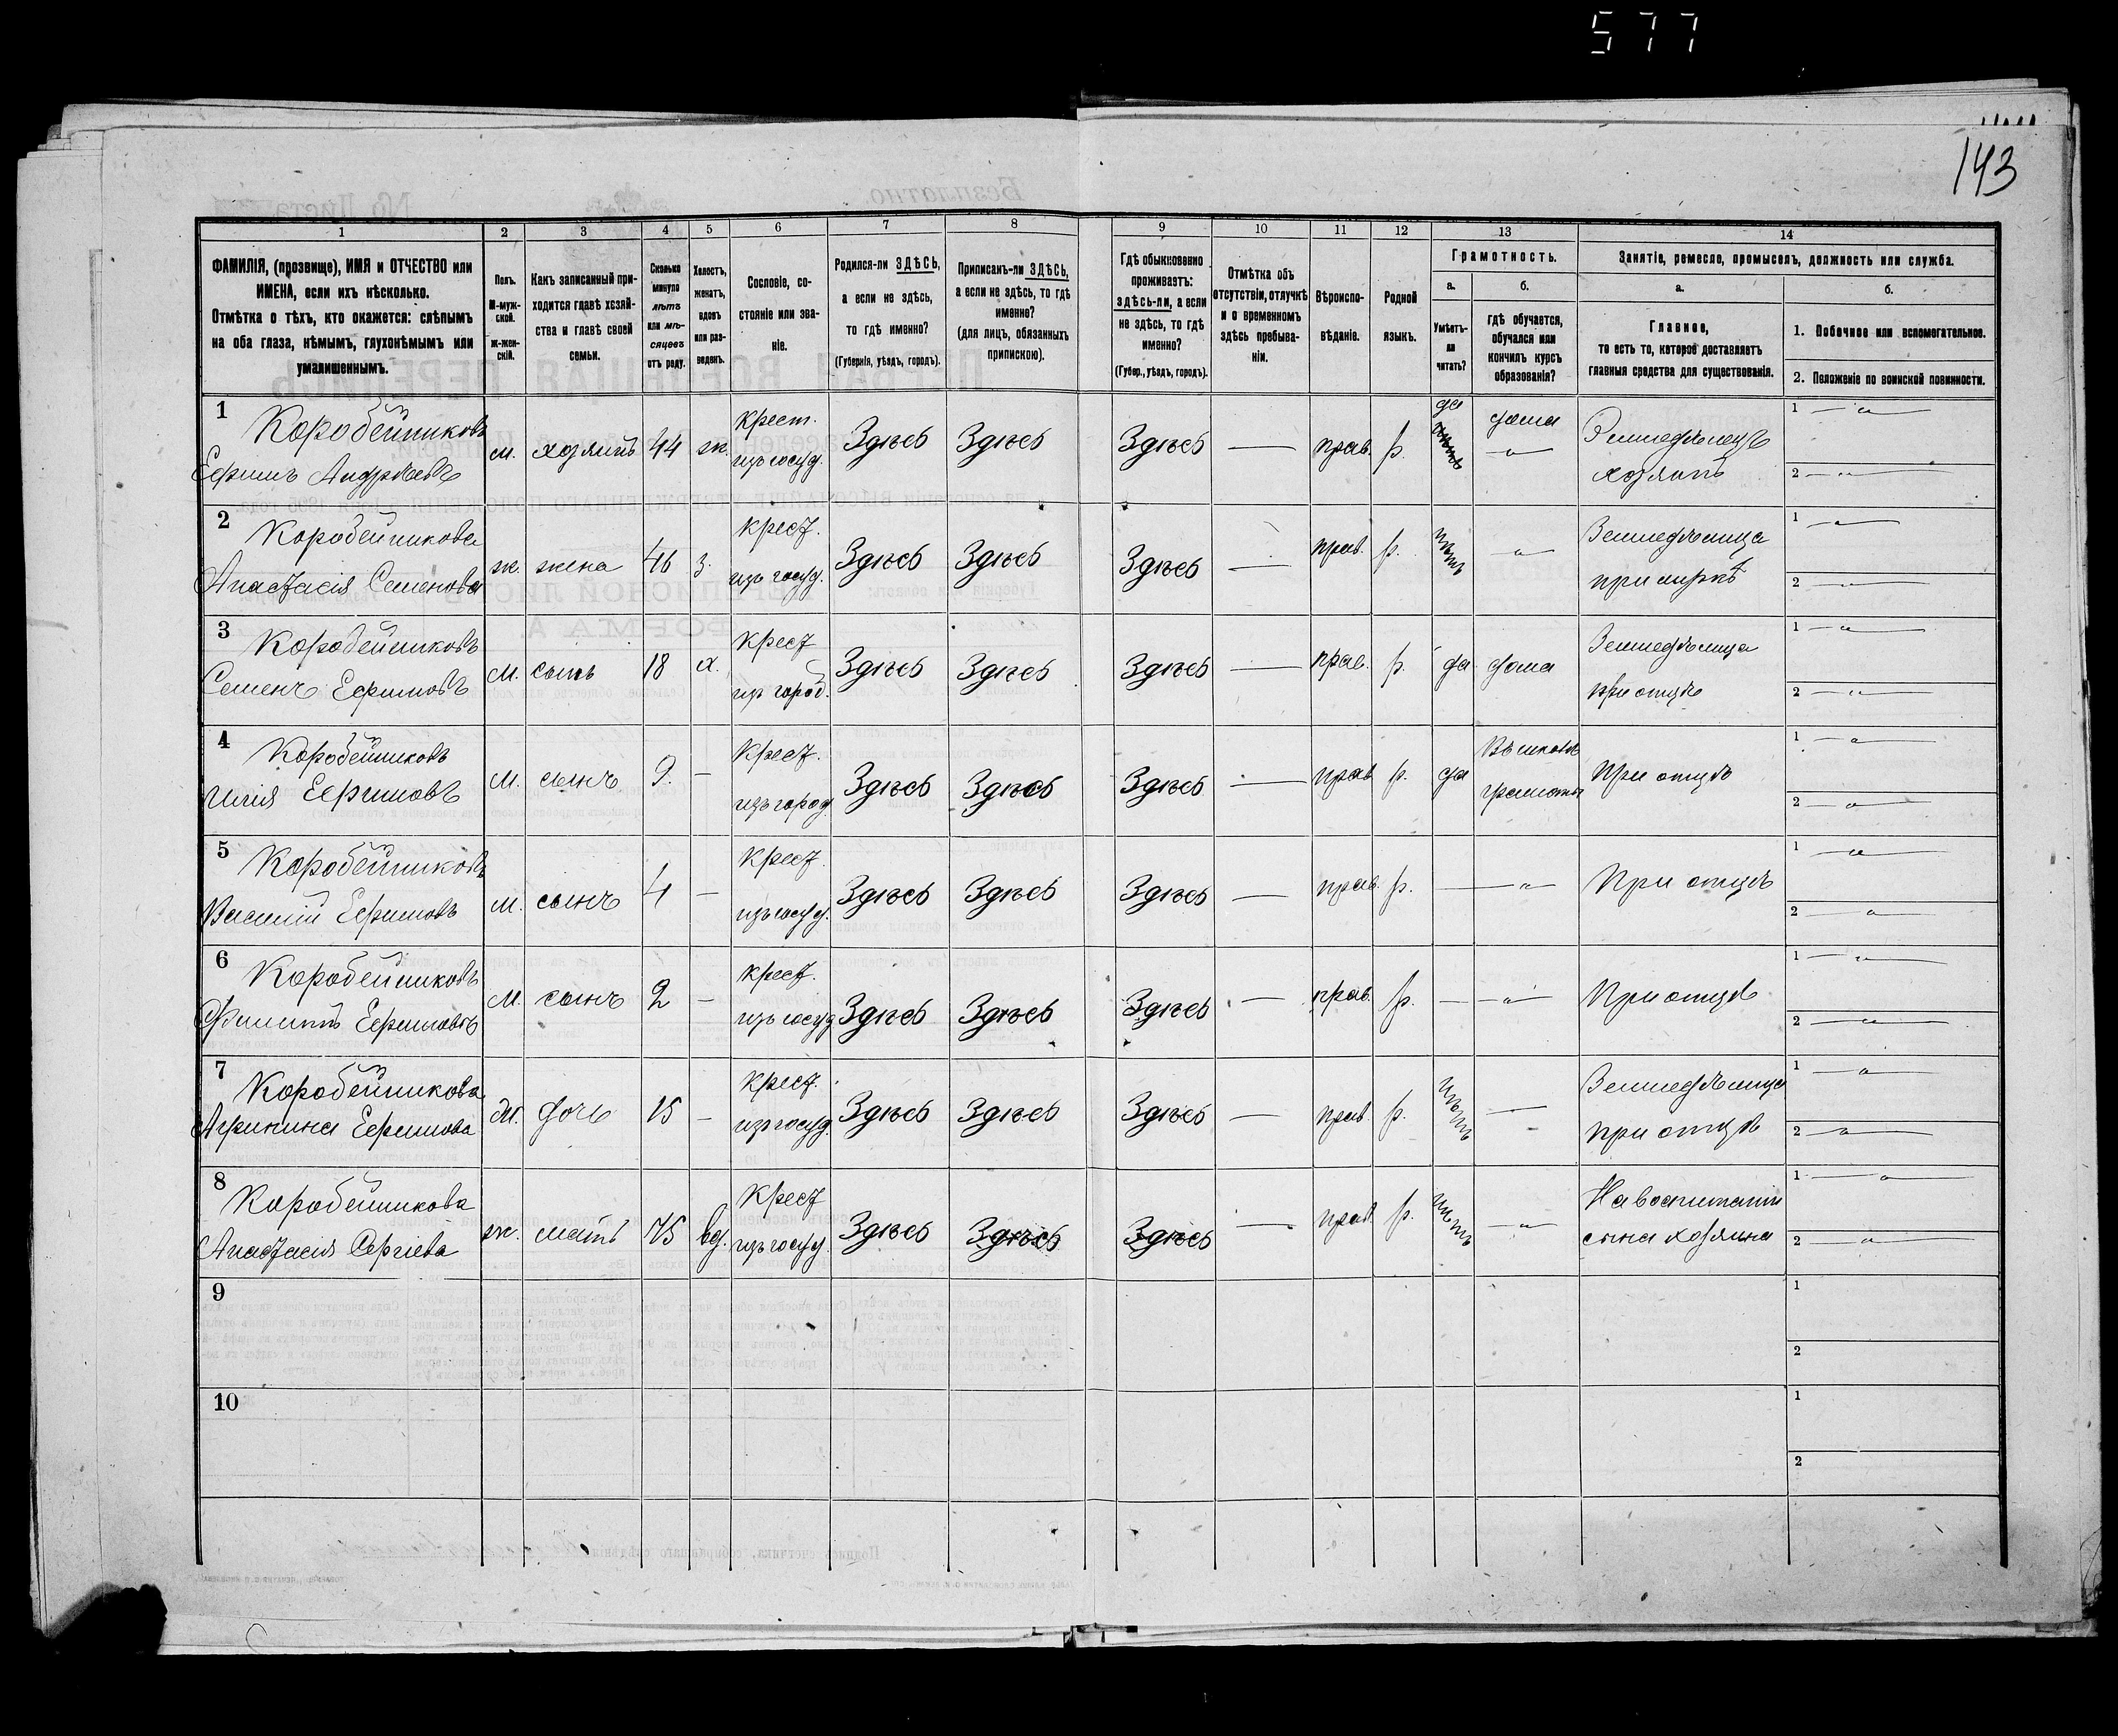 577
143
1
2
3
4
5
6
7
8
9
10
11
12
13
14
ФАМИЛІЯ, (прозвище), ИМЯ и ОТЧЕСТВО или
ИМЕНА, если ихъ нѣсколько.
Отмѣтка о тѣхъ, кто окажется: слѣпымъ
на оба глаза, нѣмымъ, глухонѣмымъ или
умалишеннымъ.
Полъ.
М-муж-
ской.
Ж-жен-
скій.
Какъ записанный при-
ходится главѣ хозяй-
ства и главѣ своей
семьи.
Сколько
минуло
лѣтъ
или мѣ-
сяцевъ
отъ роду.
Холостъ,
женатъ,
вдовъ
или раз-
веденъ.
Сословіе, со-
стояніе или зва-
ніе.
Родился-ли ЗДѢСЬ,
а если не здѣсь,
то гдѣ именно?
(Губернія, уѣздъ, городъ).
Приписанъ-ли ЗДѢСЬ,
а если не здѣсь, то гдѣ
именно?
(для лицъ, обязанныхъ
припискою).
Гдѣ обыкновенно
проживаетъ:
здѣсь-ли, а если
не здѣсь, то гдѣ
именно?
(Губер., уѣздъ, городъ).
Отмѣтка объ
отсутствіи, отлучкѣ
и о временномъ
здѣсь пребыва-
ніи.
Вѣроиспо-
вѣданіе.
Родной
языкъ.
Грамотность.
а.
Умѣетъ-
ли
читать?
б.
гдѣ обучается,
обучался или
кончилъ курсъ
образованія?
Занятіе, ремесло, промыселъ, должность или служба.
а.
Главное,
то есть то, которое доставляетъ
главныя средства для существованія.
б.
1. Побочное или вспомогательное.
2. Положеніе по воинской повинности.
1 Коробейниковъ
Ефимъ Андреевъ
м. хозяинъ 44 ж. крест.
изъ госуд. Здѣсь Здѣсь Здѣсь — прав. р. да дома
Земледѣлецъ
хозяинъ
1 — „ —
2 — „ —
2 Коробейникова
Анастасія Семенова
ж. жена 46 з. крест.
изъ госуд. Здѣсь Здѣсь Здѣсь — прав. р. нѣтъ — „ —
Земледѣлица
при мужѣ
1 — „ —
2 — „ —
3 Коробейниковъ
Семенъ Ефимовъ
м. сынъ 18 х. крест
изъ город. Здѣсь Здѣсь Здѣсь — прав. р. да дома
Земледѣлица
при отцѣ
1 — „ —
2 — „ —
4 Коробейниковъ
Илія Ефимовъ
м. сынъ 9. — крест.
изъ город. Здѣсь Здѣсь Здѣсь — прав. р. да Въ школѣ
грамоты
При отцѣ
1 — „ —
2 — „ —
5 Коробейниковъ
Василій Ефимовъ
м. сынъ 4 — крест.
изъ госуд. Здѣсь Здѣсь Здѣсь — прав. р. — „ —
При отцѣ
1 — „ —
2 — „ —
6 Коробейниковъ
Филиппъ Ефимовъ
м. сынъ 2 — крест.
изъ госуд Здѣсь Здѣсь Здѣсь — прав. р. — — „ —
При отцѣ
1 — „ —
2 — „ —
7 Коробейникова
Ефимова
дочь 15 — крест.
изъ госуд. Здѣсь Здѣсь Здѣсь — прав. р. нѣтъ —
Земледѣлица
при отцѣ
1 — „ —
2 — „ —
8 Коробейникова
Анастасія Сергіева
ж. мать 75 вд. крест
изъ госуд. Здѣсь Здѣсь Здѣсь — прав. р. нѣтъ — „ —
На воспитаніи
сына хозяина
1 — „ —
2 — „ —
9
1
2
10
1
2